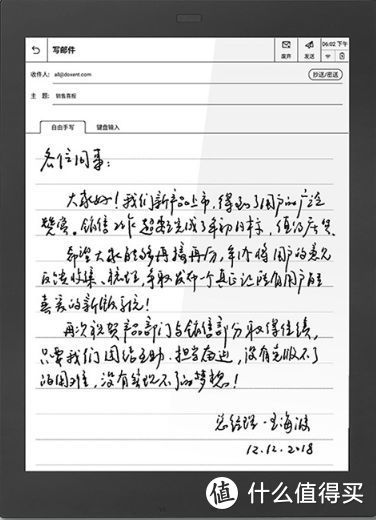 写邮件
废弃
发送
06:02 下午
收件人: all@doxent.com
抄送/密送
主 题: 销售喜报
自由手写
键盘输入
各位同事:
大家好!我们新产品上市,得到了用户的广泛
赞赏。销售工作超额完成了年初目标,值得庆贺。
希望大家能够再接再厉,年内将用户的意见
反馈收集、梳理,争取发布一个真正让所有用户都
喜爱的新版系统!
再次祝贺产品部门与销售部分取得佳绩,
只要我们团结互助、担当奋进,没有克服不了
的困难,没有实现不了的梦想!
总经理·王海波
12.12.2018
值 什么值得买